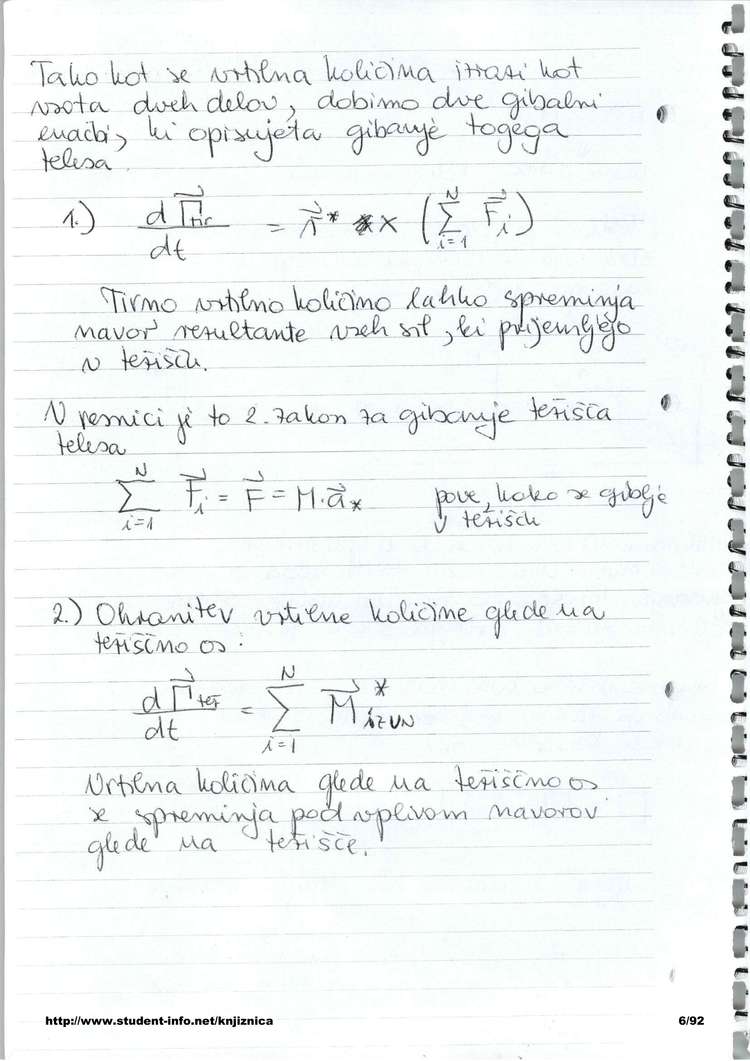 Tako kot se vrtilna količina izrazi kot
vsota dveh delov, dobimo dve gibalni
enačbi, ki opisujeta gibanje togega
telesa.
1.) dΓ⃗tir/dt = r⃗* × (∑_{i=1}^{N} F⃗i)
Tirno vrtilno količino lahko spreminja
navor resultante vseh sil, ki prijemljejo
v težišču.
V resnici je to 2. zakon za gibanje težišča
telesa
∑_{i=1}^{N} F⃗i = F⃗ = M·a⃗* pove, kako se giblje
v težišču
2.) Ohranitev vrtilne količine glede na
težiščno os:
dΓ⃗tež/dt = ∑_{i=1}^{N} M⃗*izun
Vrtilna količina glede na težiščno os
se spreminja pod vplivom navorov
glede na težišče.
http://www.student-info.net/knjiznica 6/92